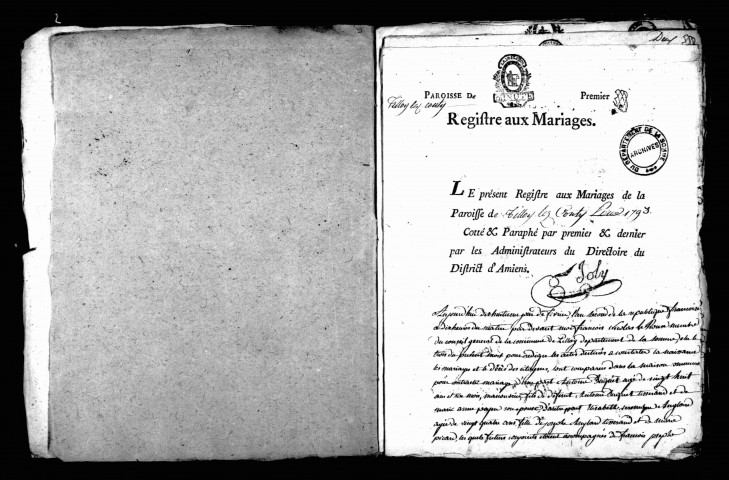 2
Deux 552
PAROISSE DE
Tilloy lez conty
MINUTE
Premier
Registre aux Mariages.
DU DÉPARTEMENT DE LA SOMME
ARCHIVES
LE présent Registre aux Mariages de la
Paroisse de Tilloy lez Conty 1793
Cotté & Paraphé par premier & dernier
par les Administrateurs du Directoire du
District d'Amiens.
Joly
Aujourd'hui dix huitieme jour de fevrier l'an second de la republique francoise
dix heures du matin par devant moi francois Nicolas le Roux membre
du conseil general de la commune de Tilloy departement de la somme
pour rediger les actes destinés a constater la naissance
les mariages et le décès des citoyens, sont comparus dans la maison commune
pour contracter mariage, d'une part Antoine age de vingt huit
ans et mois, manouvrier, fils de defunt Antoine tisserand et de
marie anne son epouse, d'autre part Elisabeth
agée de vingt quatre ans fille de joseph tisserand et de marie
picard les quels futurs conjoints etoient accompagnés de francois joseph